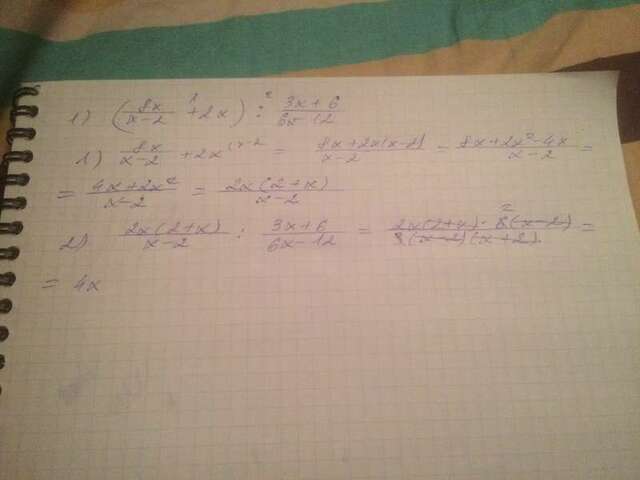 1) (8x/x-2 + 2x) : 3x+6/6x-12
1) 8x/x-2 + 2x = 8x+2x(x-2)/x-2 = 8x+2x²-4x/x-2 =
= 4x+2x²/x-2 = 2x(2+x)/x-2
2) 2x(2+x)/x-2 : 3x+6/6x-12 = 2x(2+x)·6(x-2)/3(x-2)(x+2) =
= 4x